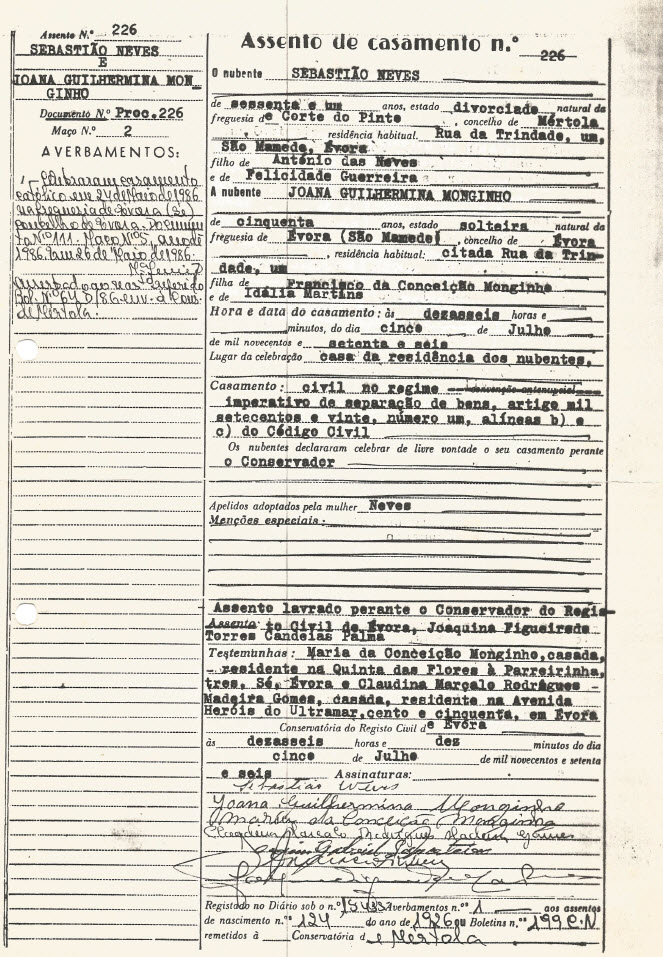 Assento N.º 226
SEBASTIÃO NEVES
E
JOANA GUILHERMINA MON_
GINHO
Documento N.º Proc.226
Maço N.º 2
AVERBAMENTOS:
1 — Celebraram casamento
católico em 24 de Maio de 1986
na freguesia de Évora (Sé)
concelho de Évora. Documen
to Nº 111. Maço Nº 5, ano de
1986. Em 26 de Maio de 1986.
Bol. Nº 64 D/86 env. à Cons.
de Mértola.
Assento de casamento n.º 226
O nubente SEBASTIÃO NEVES
de sessenta e um anos, estado divorciado natural da
freguesia de Corte do Pinto, concelho de Mértola
, residência habitual. Rua da Trindade, um,
São Mamede, Évora
filho de António das Neves
e de Felicidade Guerreira
A nubente JOANA GUILHERMINA MONGINHO
de cinquenta anos, estado solteira natural da
freguesia de Évora (São Mamede), concelho de Évora
, residência habitual: citada Rua da Trin-
dade, um
filha de Francisco da Conceição Monginho
e de Idália Martins
Hora e data do casamento: às dezasseis horas e
minutos, do dia cinco de Julho
de mil novecentos e setenta e seis
Lugar da celebração casa da residência dos nubentes,
Casamento: civil no regime convenção antenupcial
imperativo de separação de bens, artigo mil
setecentos e vinte, número um, alíneas b) e
c) do Código Civil
Os nubentes declararam celebrar de livre vontade o seu casamento perante
o Conservador
Apelidos adoptados pela mulher Neves
Menções especiais:
Assento lavrado perante o Conservador do Regis-
Assento to Civil de Évora, Joaquina Figueireda
Torres Candeias Palma
Testemunhas: Maria da Conceição Monginho, casada,
residente na Quinta das Flores à Parreirinha,
tres, Sé, Évora e Claudina Marçalo Rodrigues -
Madeira Gomes, casada, residente na Avenida
Heróis do Ultramar, cento e cinquenta, em Évora
Conservatória do Registo Civil de Évora
às dezasseis horas e dez minutos do dia
cinco de Julho de mil novecentos e setenta
e seis Assinaturas:
Sebastião Neves
Joana Guilhermina Monginho
Maria da Conceição Monginho
Registado no Diário sob o n.º averbamentos n.º 1 aos assentos
de nascimento n.º 124 do ano de 1926 ou Boletins n.ºs 199 C.N
remetidos à Conservatória de Mértola